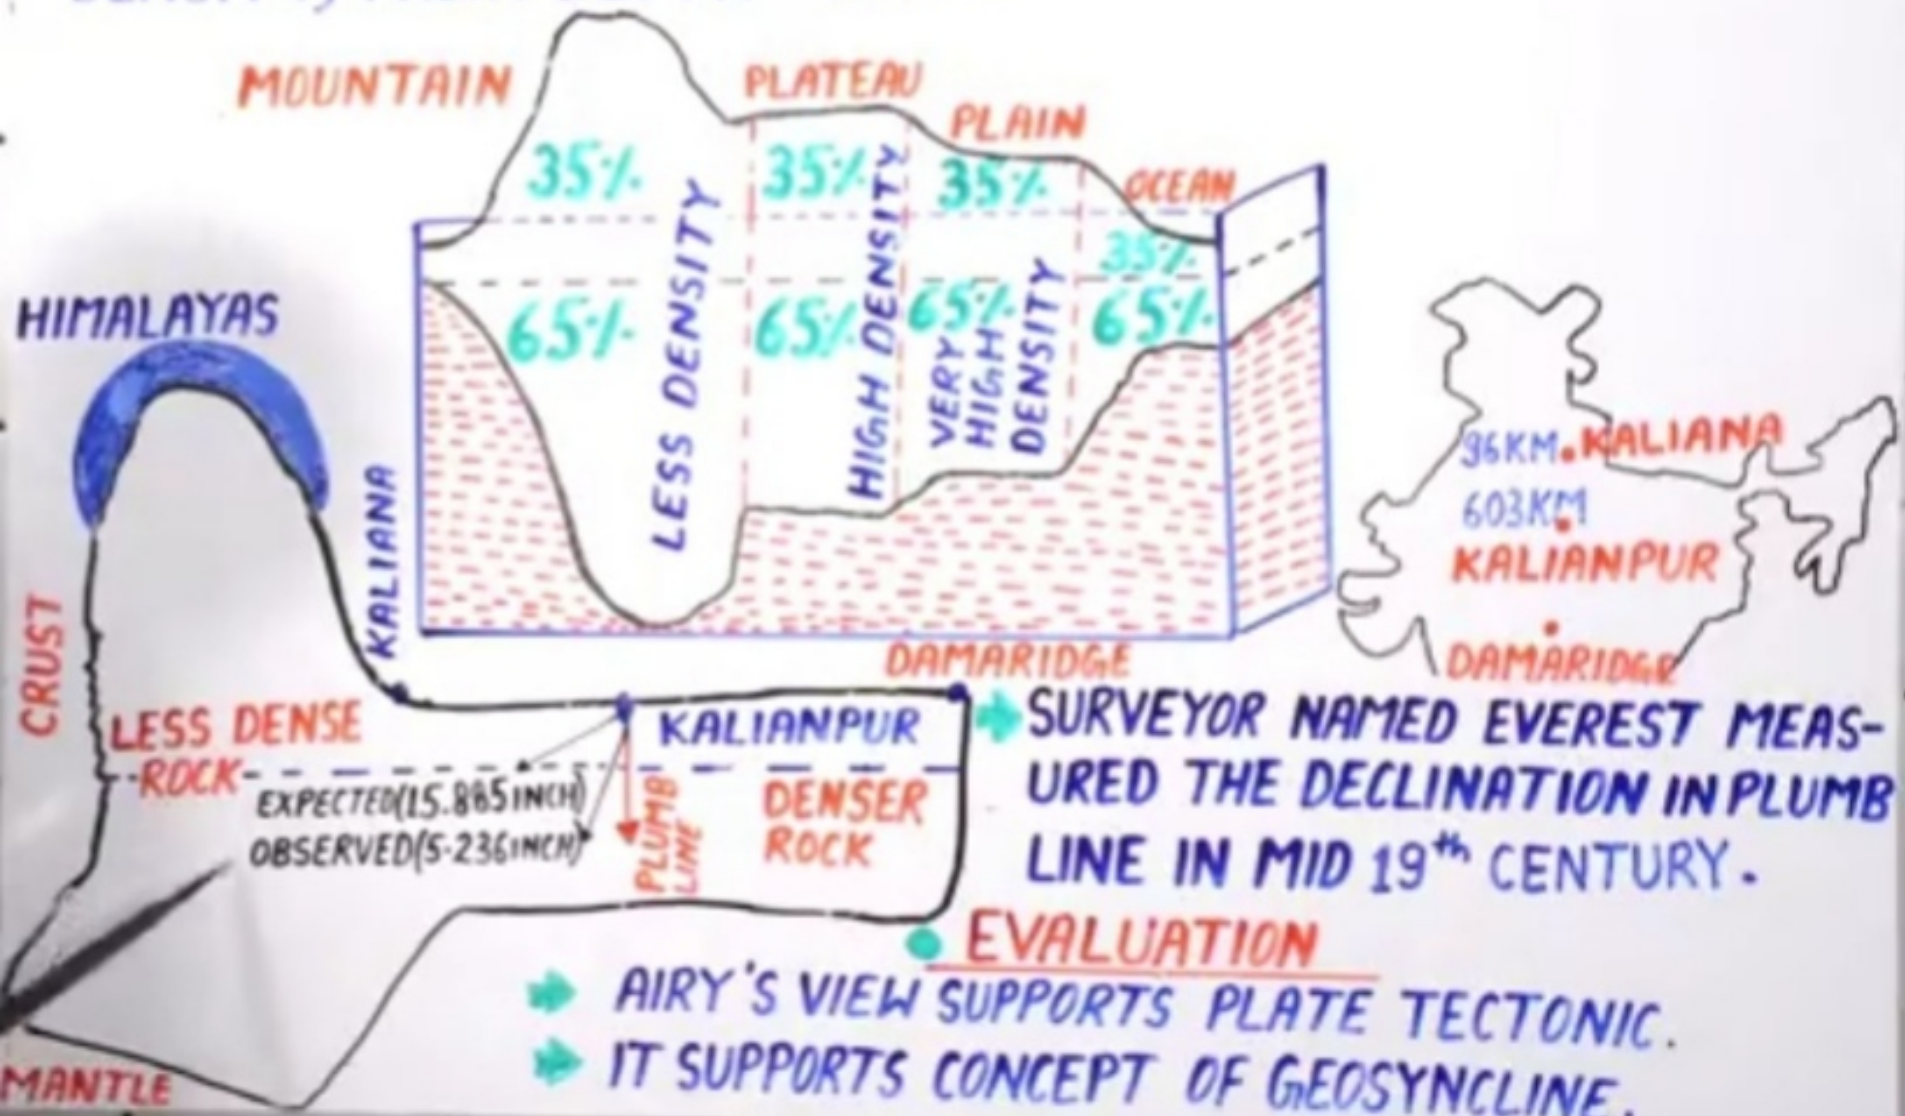 MOUNTAIN
PLATEAU
PLAIN
OCEAN
35%
35%
35%
35%
65%
65%
65%
65%
LESS DENSITY
HIGH DENSITY
VERY
HIGH
DENSITY
HIMALAYAS
CRUST
KALIANA
DAMARIDGE
LESS DENSE
ROCK
KALIANPUR
EXPECTED(15.885INCH)
OBSERVED(5.236INCH)
PLUMB
LINE
DENSER
ROCK
MANTLE
96KM
KALIANA
603KM
KALIANPUR
DAMARIDGE
SURVEYOR NAMED EVEREST MEAS-
URED THE DECLINATION IN PLUMB
LINE IN MID 19th CENTURY.
EVALUATION
AIRY'S VIEW SUPPORTS PLATE TECTONIC.
IT SUPPORTS CONCEPT OF GEOSYNCLINE.